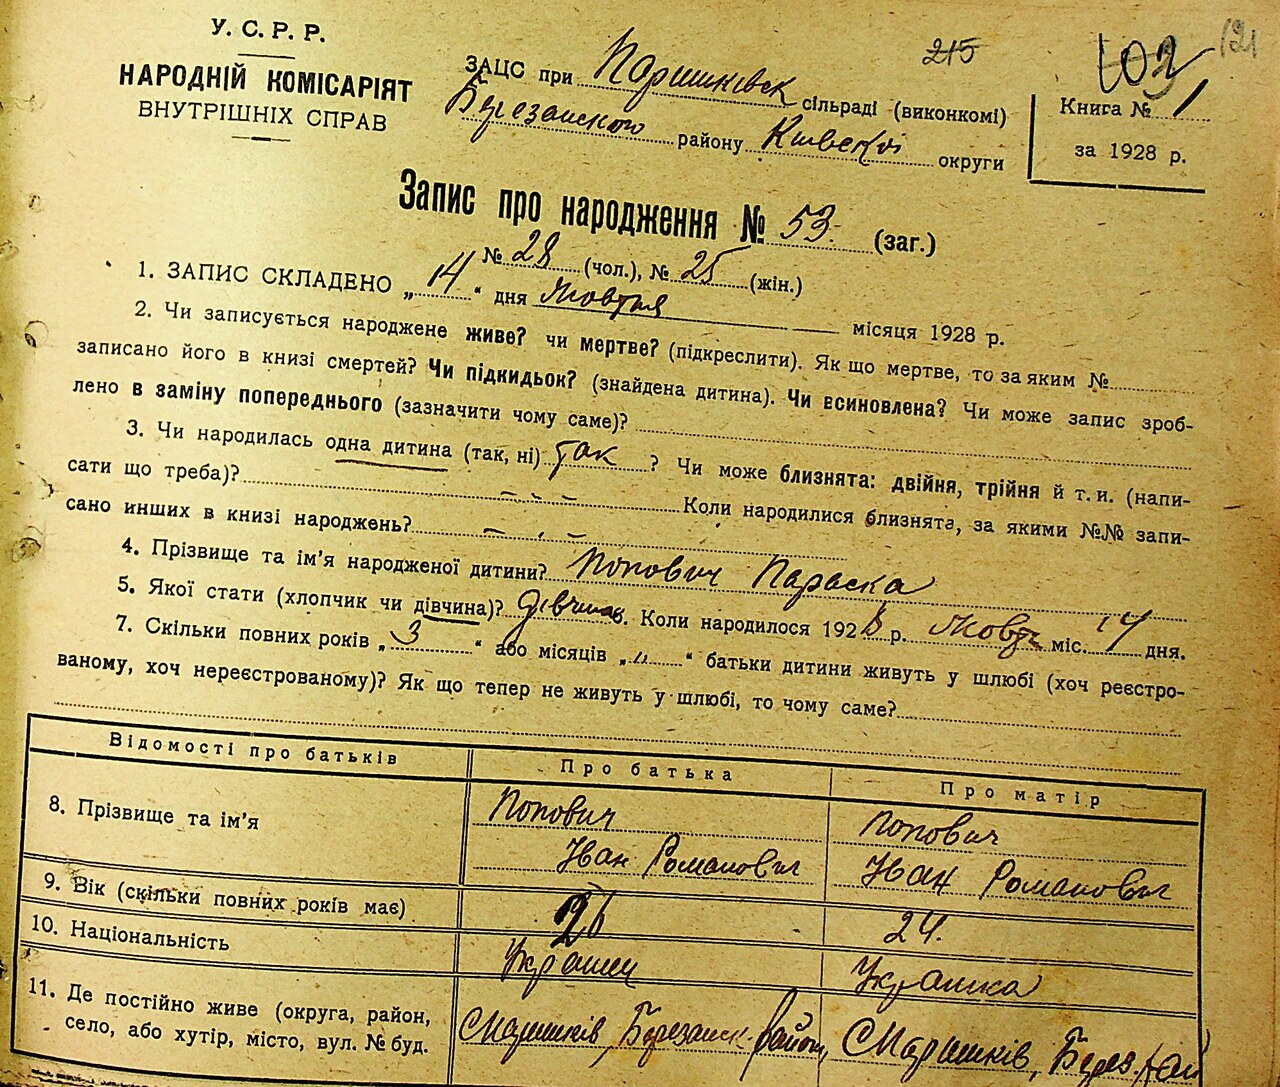 215
103
121
У. С. Р. Р.
НАРОДНІЙ КОМІСАРІЯТ
ВНУТРІШНІХ СПРАВ
ЗАЦС при Паришківск сільраді (виконкомі)
Березанского району Київскої округи
Книга № 1
за 1928 р.
Запис про народження № 53. (заг.)
№ 28 (чол.), № 25 (жін.)
1. ЗАПИС СКЛАДЕНО „ 14 “ дня Жовтня місяця 1928 р.
2. Чи записується народжене живе? чи мертве? (підкреслити). Як що мертве, то за яким №
записано його в книзі смертей? Чи підкидьок? (знайдена дитина). Чи всиновлена? Чи може запис зроб-
лено в заміну попереднього (зазначити чому саме)?
3. Чи народилась одна дитина (так, ні) так ? Чи може близнята: двійня, трійня й т. и. (напи-
сати що треба)? Коли народилися близнята, за якими №№ запи-
сано инших в книзі народжень?
4. Прізвище та ім’я народженої дитини? Попович Параска
5. Якої стати (хлопчик чи дівчина)? дівчина 6. Коли народилось 1928 р. Жовт міс. 14 дня.
7. Скільки повних років „ 3 “ або місяців „ “ батьки дитини живуть у шлюбі (хоч реєстро-
ваному, хоч нереєстрованому)? Як що тепер не живуть у шлюбі, то чому саме?
Відомості про батьків
Про батька
Про матір
8. Прізвище та ім’я
Попович
Іван Романович
Попович
Іван Романович
9. Вік (скільки повних років має)
26
24.
10. Національність
Украинец
Украинка
11. Де постійно живе (округа, район,
село, або хутір, місто, вул. № буд.
С Паришків, Березанск. район
С Паришків, Берез. рай